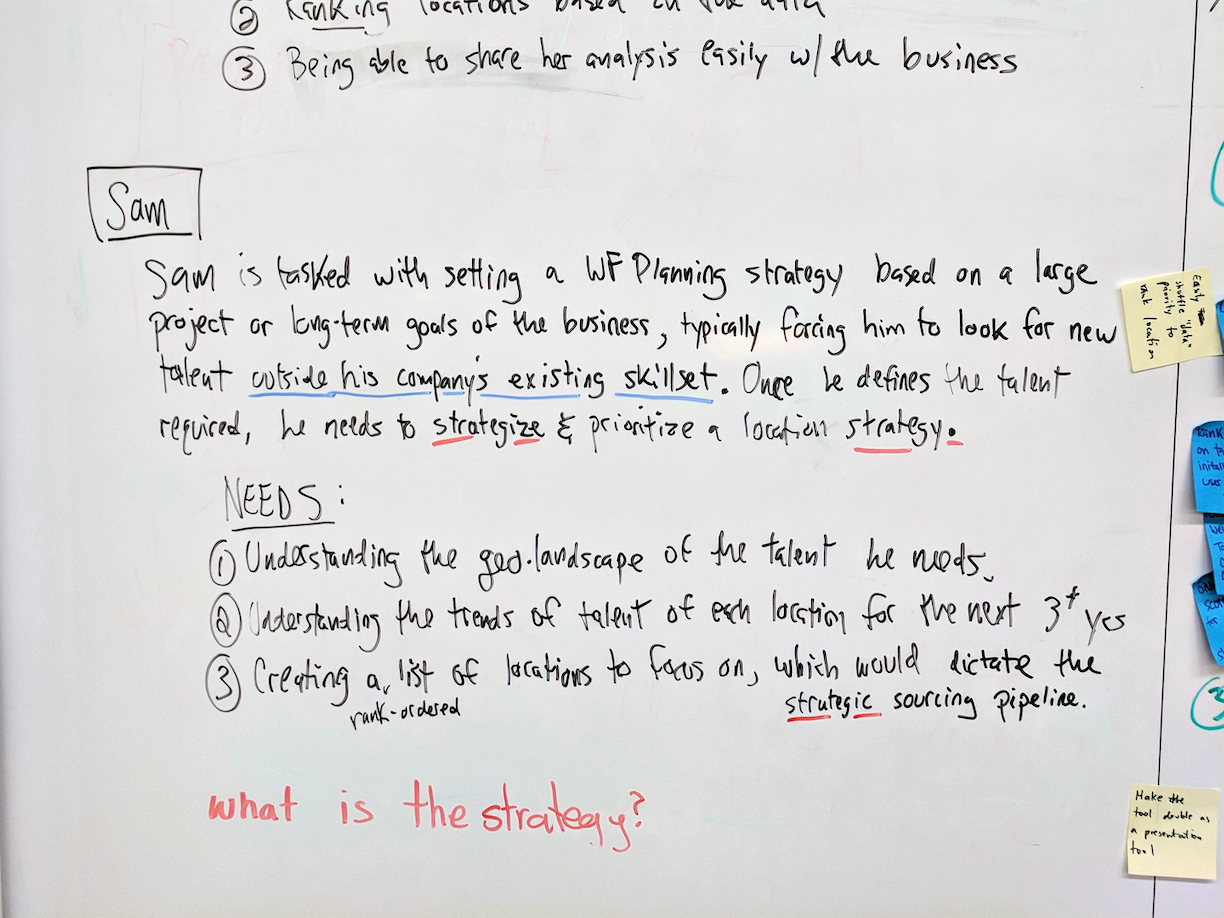 ② Ranking locations based on the data
③ Being able to share her analysis easily w/ the business
Sam
Sam is tasked with setting a WF Planning strategy based on a large
project or long-term goals of the business, typically forcing him to look for new
talent outside his company's existing skillset. Once he defines the talent
required, he needs to strategize & prioritize a location strategy.
NEEDS:
① Understanding the geo. landscape of the talent he needs.
② Understanding the trends of talent of each location for the next 3+ yrs
③ Creating a list of locations to focus on, which would dictate the
rank-ordered strategic sourcing pipeline.
what is the strategy?
Easily
shuffle "data"
priority to
rank location
Rank
on
user
③
Make the
tool double as
a presentation
tool